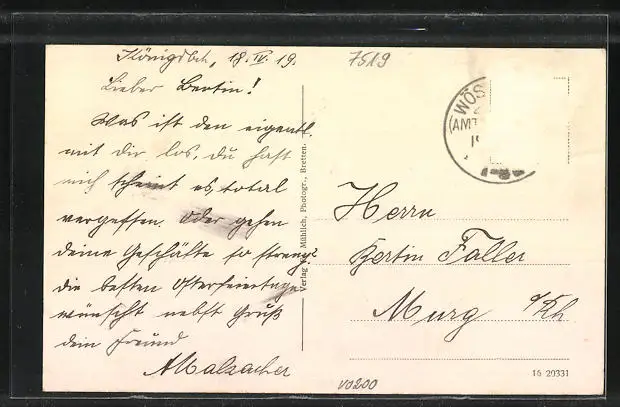 Königsbch, 18.IV.19.
7519
Lieber Bertin!
Was ist den eigentl.
mit dir los, du hast
mich scheint es, total
vergessen. Oder gehen
deine Geschäfte so streng?
die besten Osterfeiertage
wünscht nebst Gruß
dein Freund
AMalzacher
Verlag Mühlich, Photogr., Bretten.
WÖS
(AMT
Herrn
Bertin Faller
Murg a/Rh
16 20331
V0200